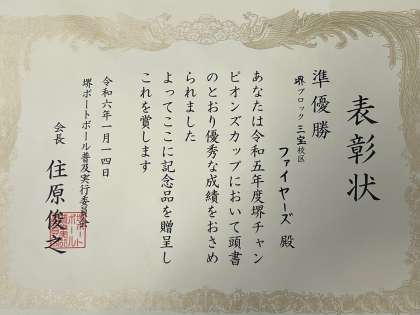 表彰状
準優勝
堺ブロック三宝校区
ファイヤーズ 殿
あなたは令和五年度堺チャン
ピオンズカップにおいて頭書
のとおり優秀な成績をおさめ
られました
よってここに記念品を贈呈し
これを賞します
令和六年一月一四日
堺ポートボール普及実行委員会
会長 住原俊之